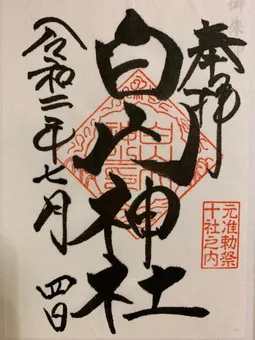 奉拝
元准勅祭
十社之内
白山神社
令和二年七月
四日